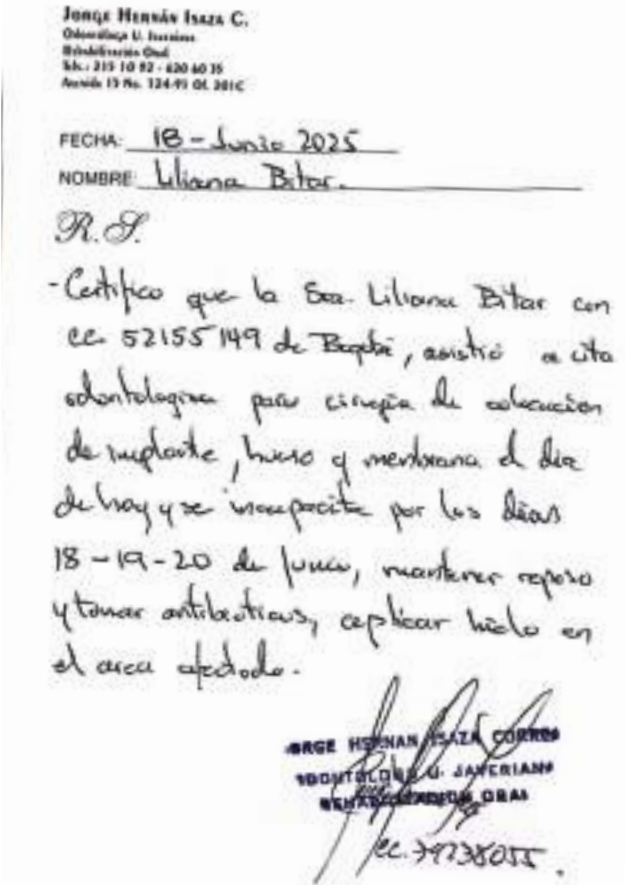 JORGE HERNÁN ISAZA C.
Odontólogo U. Javeriana
Rehabilitación Oral
Tels.: 215 10 92 - 620 60 35
Avenida 15 No. 124-91 Of. 201C
FECHA: 18 - Junio 2025
NOMBRE: Liliana Bitar.
R.S.
- Certifico que la Sra. Liliana Bitar con
cc. 52155149 de Bogotá, asistió a cita
odontologica para cirugía de colocación
de implante, hueso y membrana el dia
de hoy y se incapacita por los días
18-19-20 de Junio, mantener reposo
y tomar antibioticos, aplicar hielo en
el area afectada.
JORGE HERNAN ISAZA CORREA
ODONTOLOGO U. JAVERIANA
REHABILITACION ORAL
cc. 79738055.